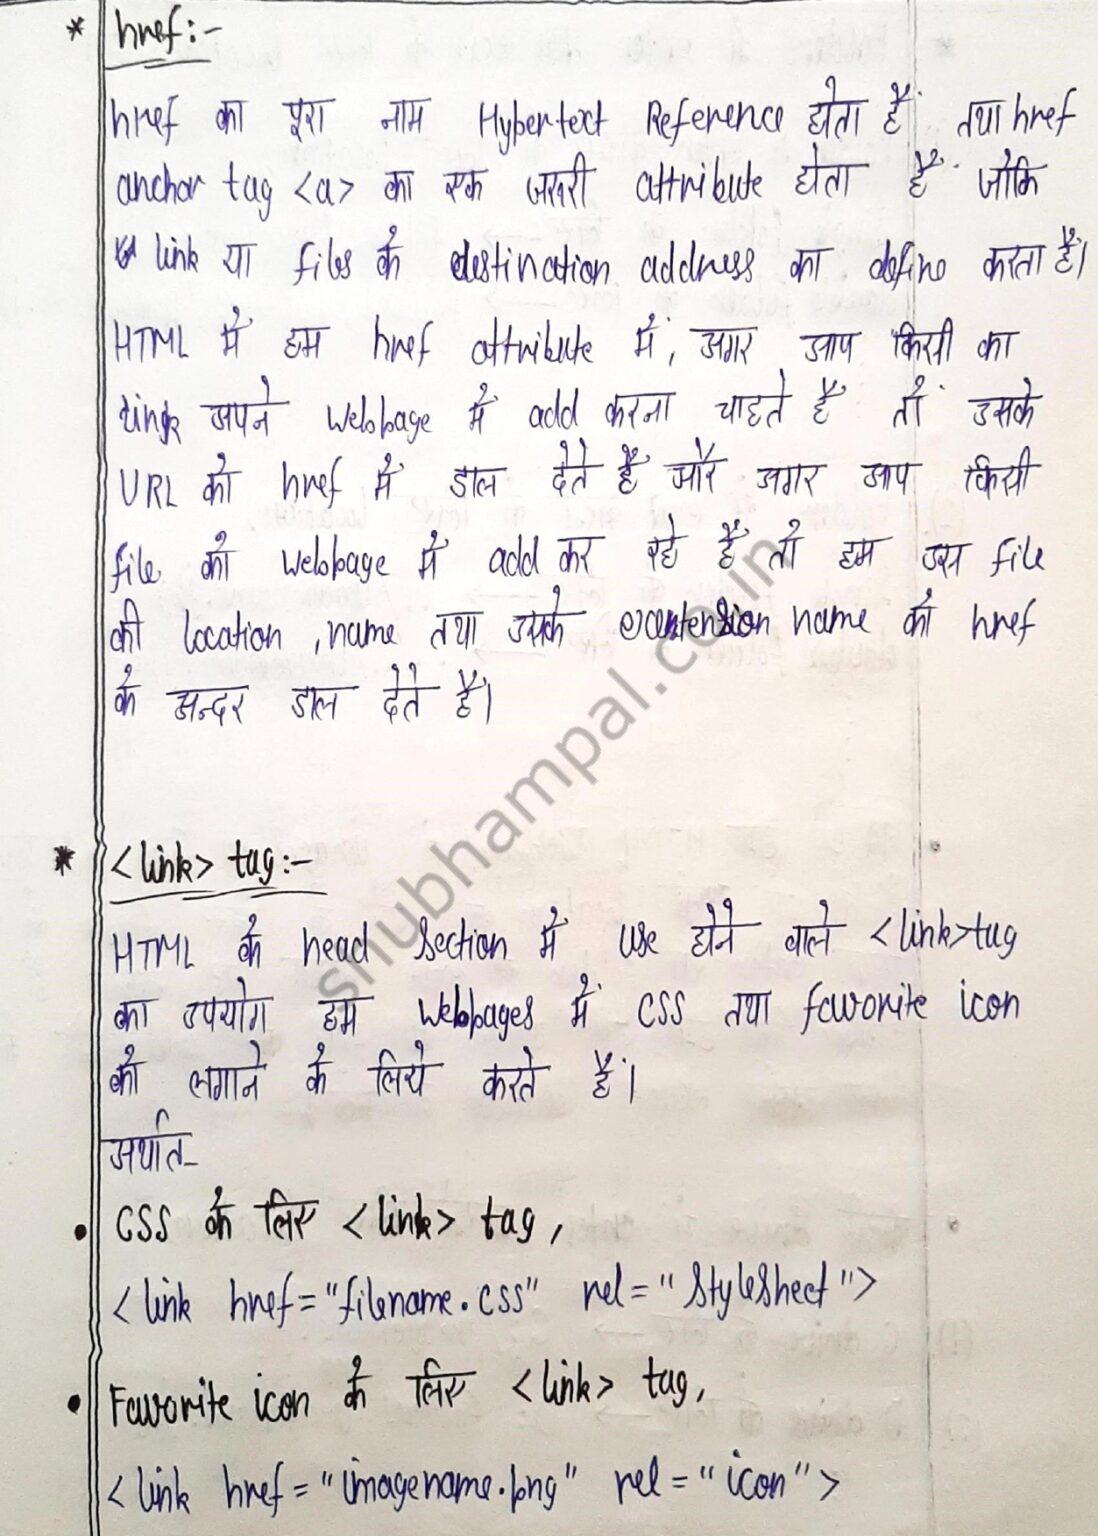 * href:-
href का पूरा नाम Hypertext Reference होता है तथा href
anchor tag <a> का एक जरुरी attribute होता है जोकि
link या files के destination address का define करता है।
HTML में हम href attribute में, अगर आप किसी का
link अपने webpage में add करना चाहते है तो उसके
URL को href में डाल देते है और अगर आप किसी
file को webpage में add कर रहे है तो हम उस file
की location, name तथा उसके extension name को href
के अन्दर डाल देते है।
* <link> tag:-
HTML के head section में use होने वाले <link>tag
का उपयोग हम webpages में CSS तथा favorite icon
को लगाने के लिये करते है।
अर्थात-
• CSS के लिए <link> tag,
<link href="filename.css" rel="StyleSheet">
• Favorite icon के लिए <link> tag,
<link href="imagename.png" rel="icon">
shubhampal.co.in